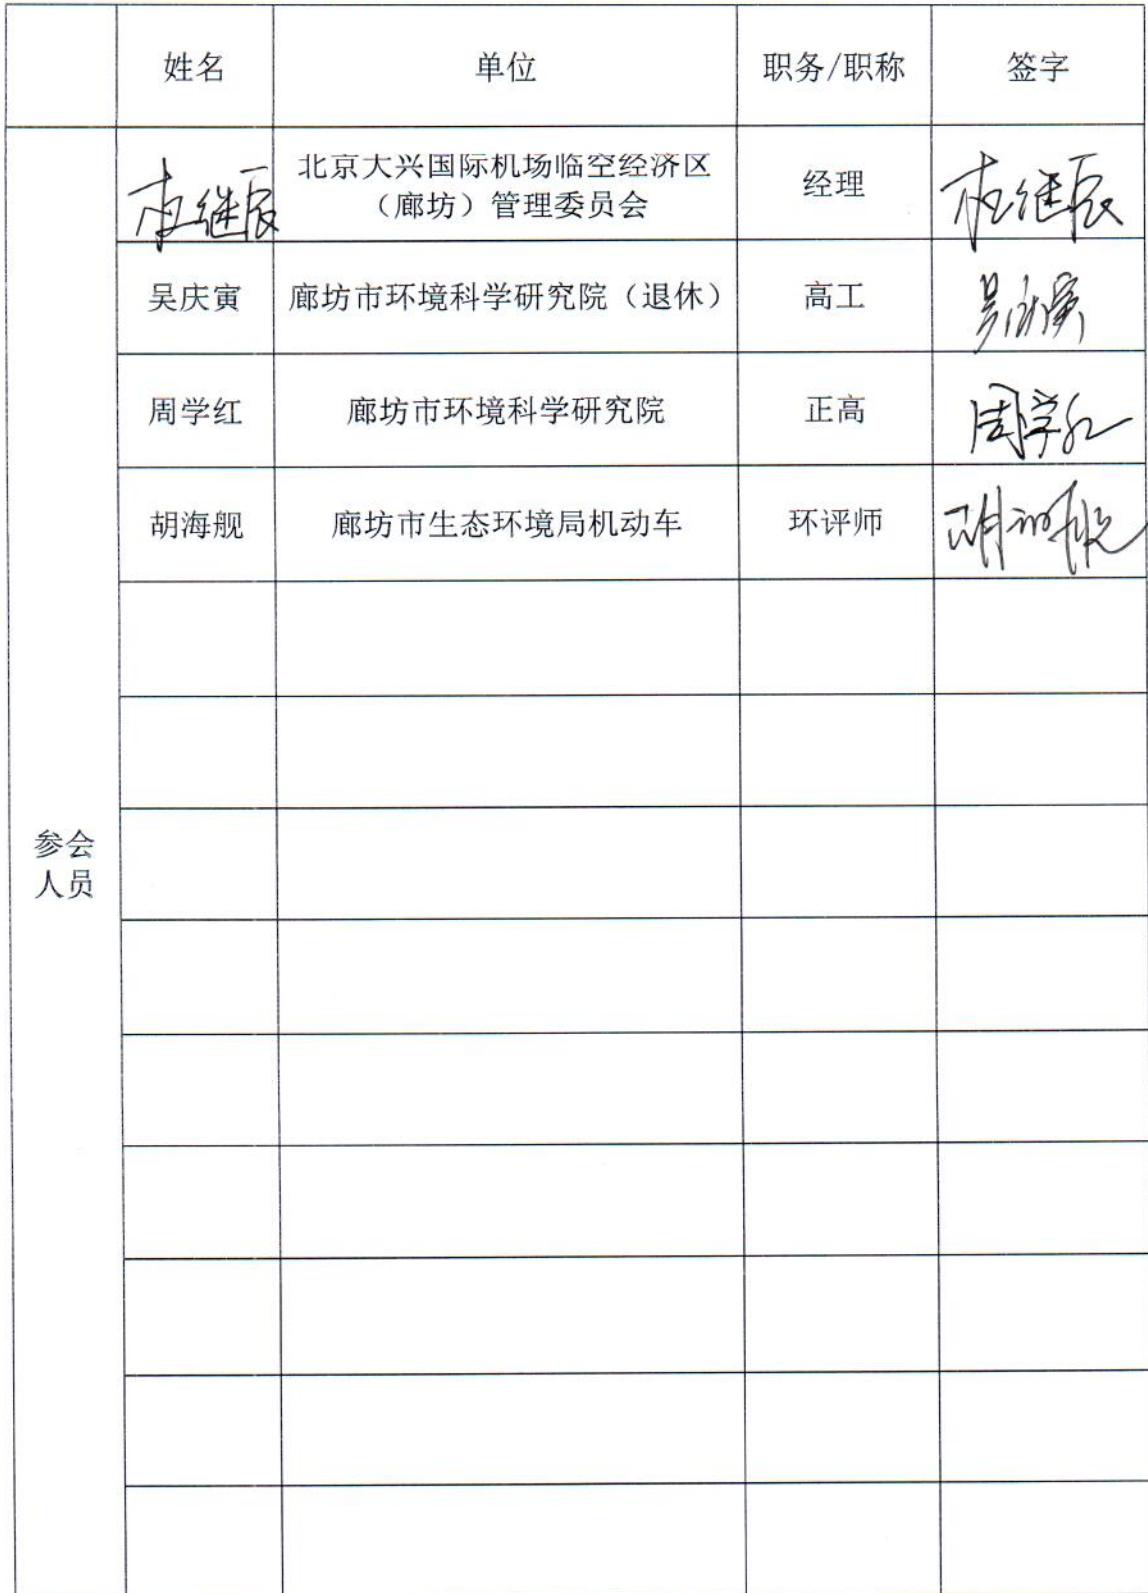 姓名 单位 职务/职称 签字
北京大兴国际机场临空经济区
（廊坊）管理委员会
经理
吴庆寅 廊坊市环境科学研究院（退休） 高工 吴庆寅
周学红 廊坊市环境科学研究院 正高 周学红
胡海舰 廊坊市生态环境局机动车 环评师 胡海舰
参会
人员